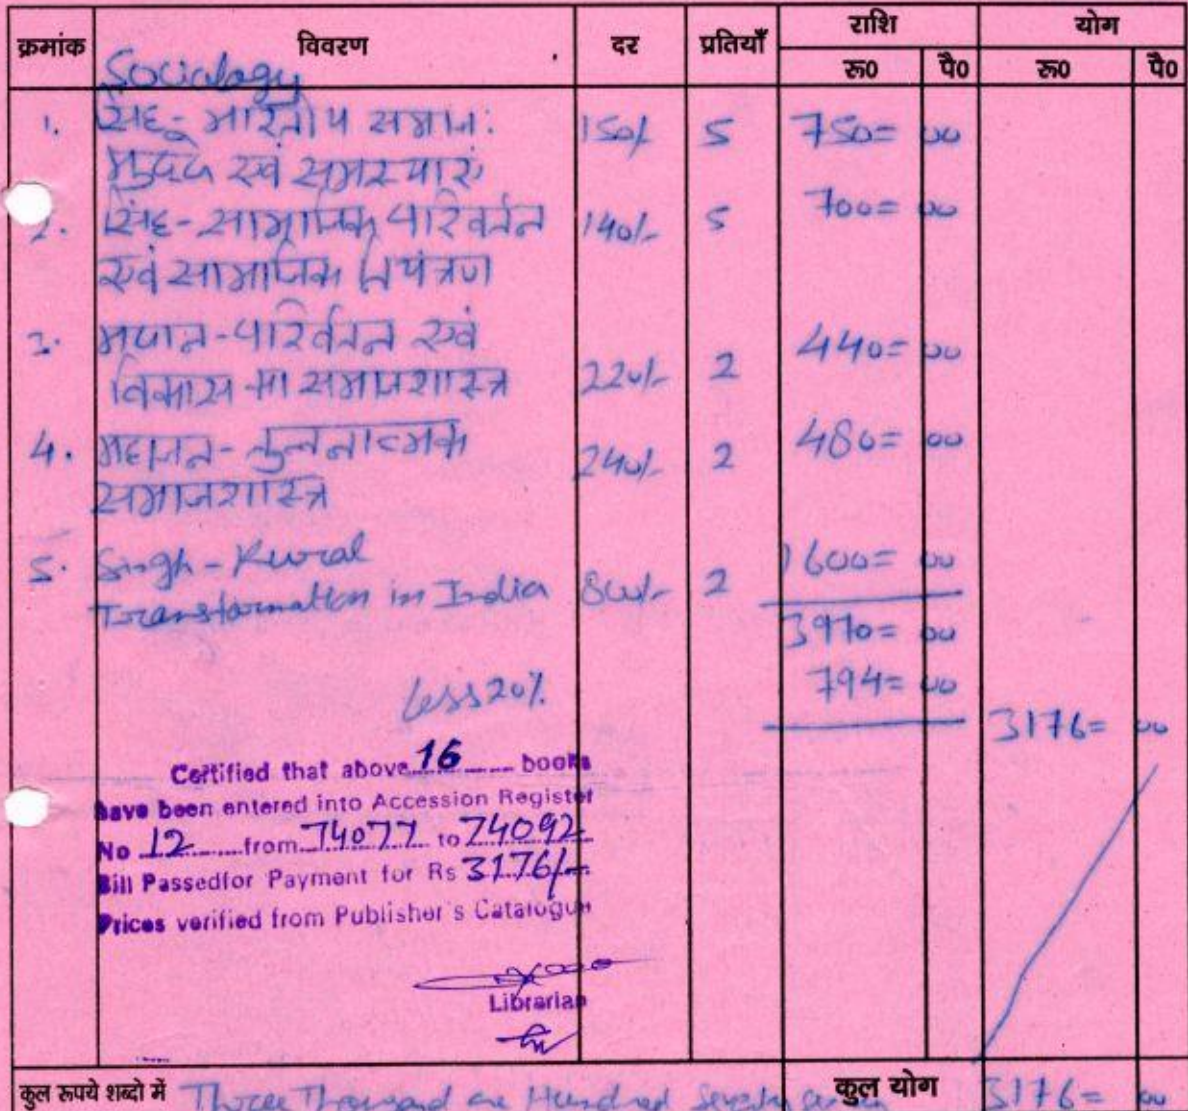 क्रमांक विवरण दर प्रतियाँ राशि योग
रू0 पै0 रू0 पै0
Sociology
1. सिंह - भारतीय समाज: 150/- 5 750= 00
मुद्दे एवं समस्याएं
2. सिंह - सामाजिक परिवर्तन 140/- 5 700= 00
एवं सामाजिक नियंत्रण
3. परिवर्तन एवं 440= 00
विकास का समाजशास्त्र 220/- 2
4. महाजन - तुलनात्मक 240/- 2 480= 00
समाजशास्त्र
5. Singh - Rural 1600= 00
Transformation in India 800/- 2
3970= 00
Less 20% 794= 00
3176= 00
Certified that above 16 books
have been entered into Accession Register
No 12 from 74077 to 74092
Bill Passedfor Payment for Rs 3176/-
Prices verified from Publisher's Catalogue
Librarian
कुल रूपये शब्दो में Three Thousand one Hundred Seventy कुल योग 3176= 00